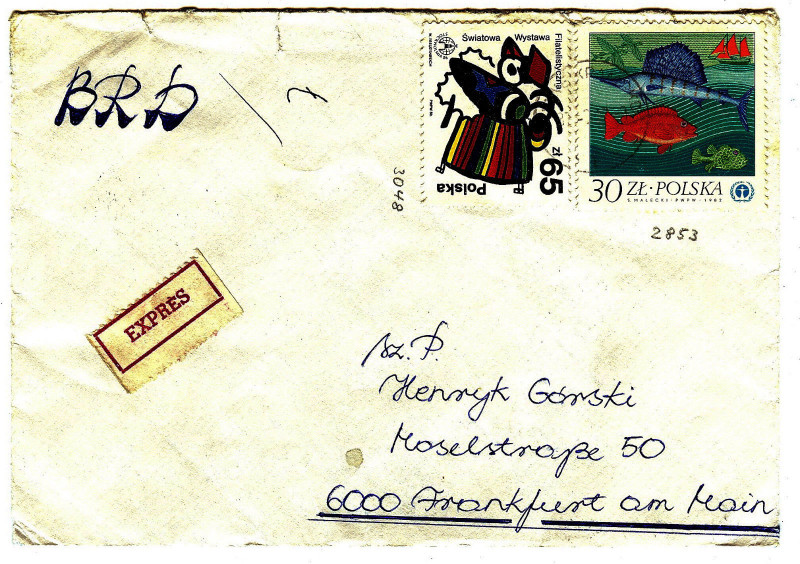 BRD
Światowa Wystawa Filatelistyczna
zł 65
Polska
3048
30 ZŁ · POLSKA
S. MAŁECKI · PWPW · 1982
2853
EXPRÈS
sz. P.
Henryk Górski
Moselstraße 50
6000 Frankfurt am Main